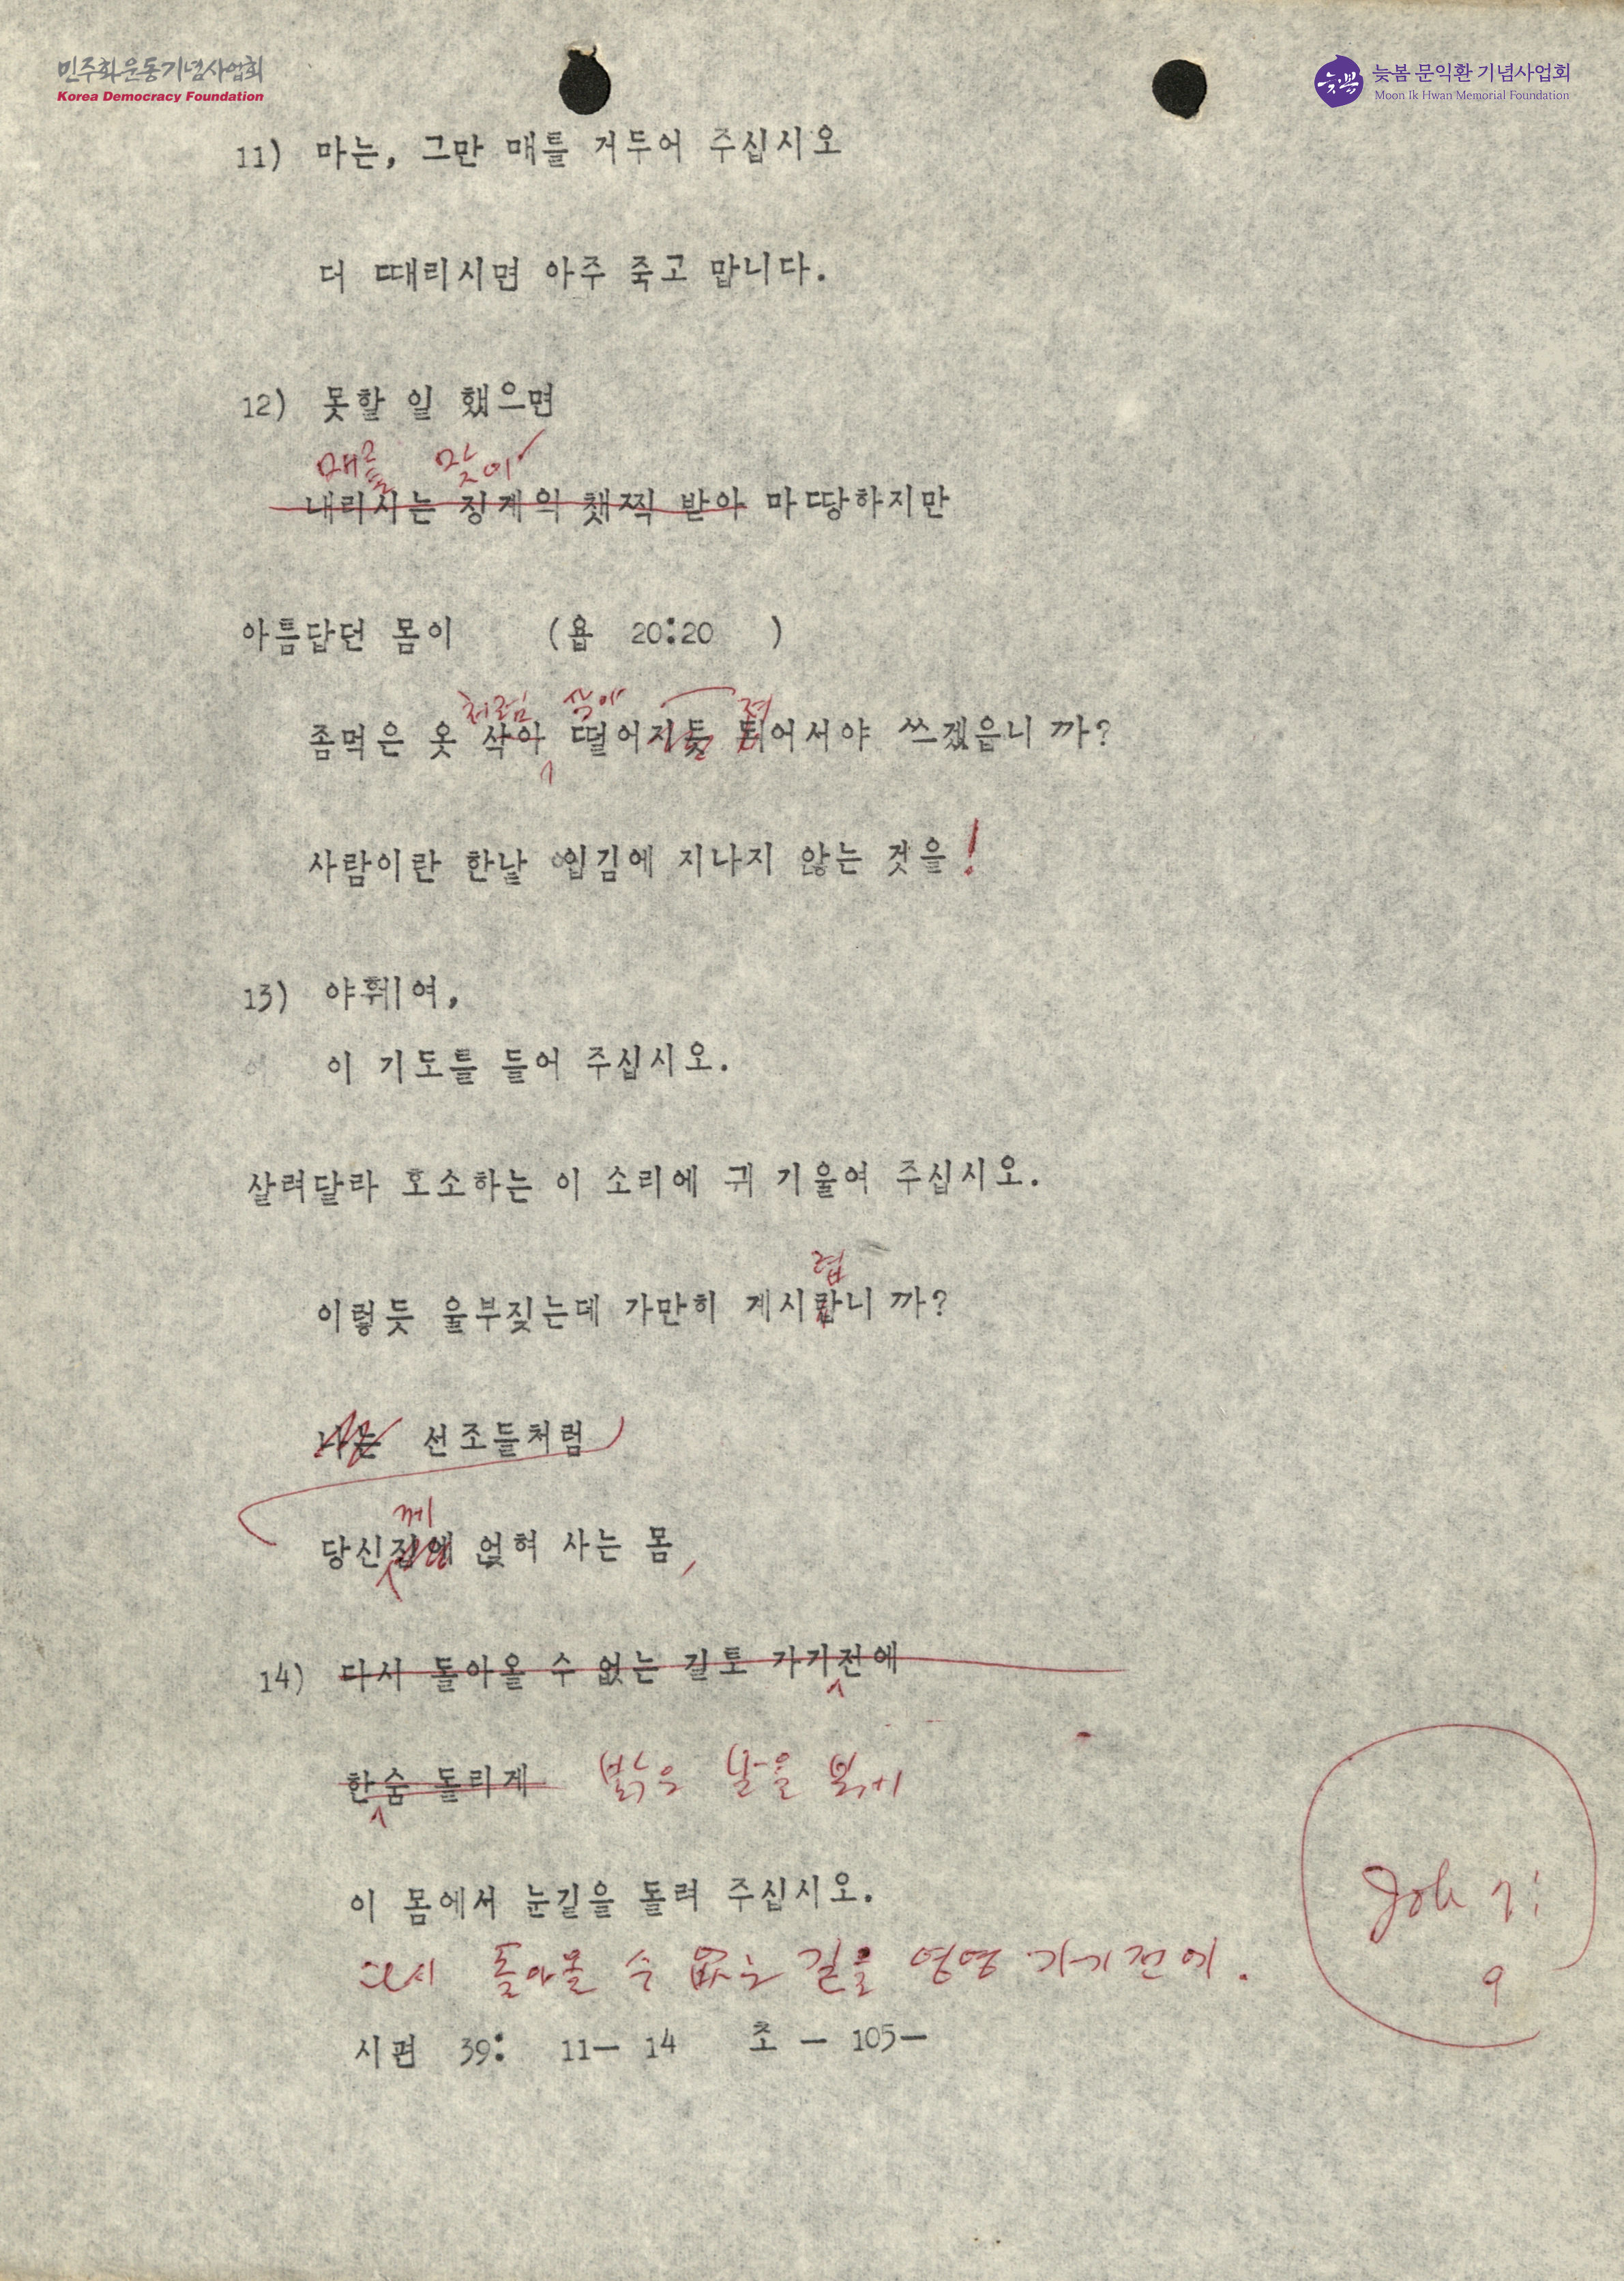 민주화운동기념사업회
Korea Democracy Foundation
늦봄
늦봄 문익환 기념사업회
Moon Ik Hwan Memorial Foundation
11) 마는, 그만 매를 거두어 주십시오
더 때리시면 아주 죽고 맙니다.
12) 못할 일 했으면
매를 맞이
내리시는 징계의 챗찍 받아 마땅하지만
아름답던 몸이 (욥 20:20 )
처럼 삭아 져
좀먹은 옷 삭아 떨어지듯 되어서야 쓰겠읍니 까?
사람이란 한낱 입김에 지나지 않는 것을!
13) 야훼여,
이 이 기도를 들어 주십시오.
살려달라 호소하는 이 소리에 귀 기울여 주십시오.
렵
이렇듯 울부짖는데 가만히 계시랍니 까?
나는 선조들처럼
께
당신집에 얹혀 사는 몸,
14) 다시 돌아올 수 없는 길로 가기전에
한숨 돌리게 밝은 날을 보게
이 몸에서 눈길을 돌려 주십시오.
다시 돌아올 수 없는 길을 영영 가기 전에.
Job 7:
9
시편 39: 11- 14 초 - 105-